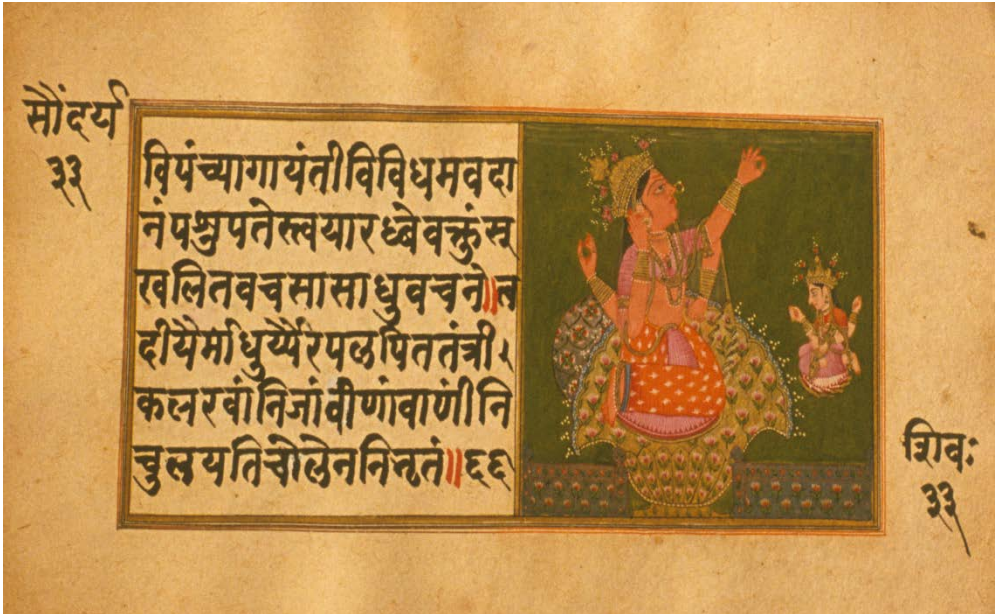 सौंदर्य
३३
विपंच्यागायंतीविविधमवदा
नंपशुपतेस्त्वयारब्धेवक्तुंस्
खलितवचसासाधुवचने॥त
दीयैर्माधुर्य्यैरपलपिततंत्री।
कलरवांनिजांवीणांवाणीनि
चुलयतिचोलेननिभृतं॥६६
शिवः
३३